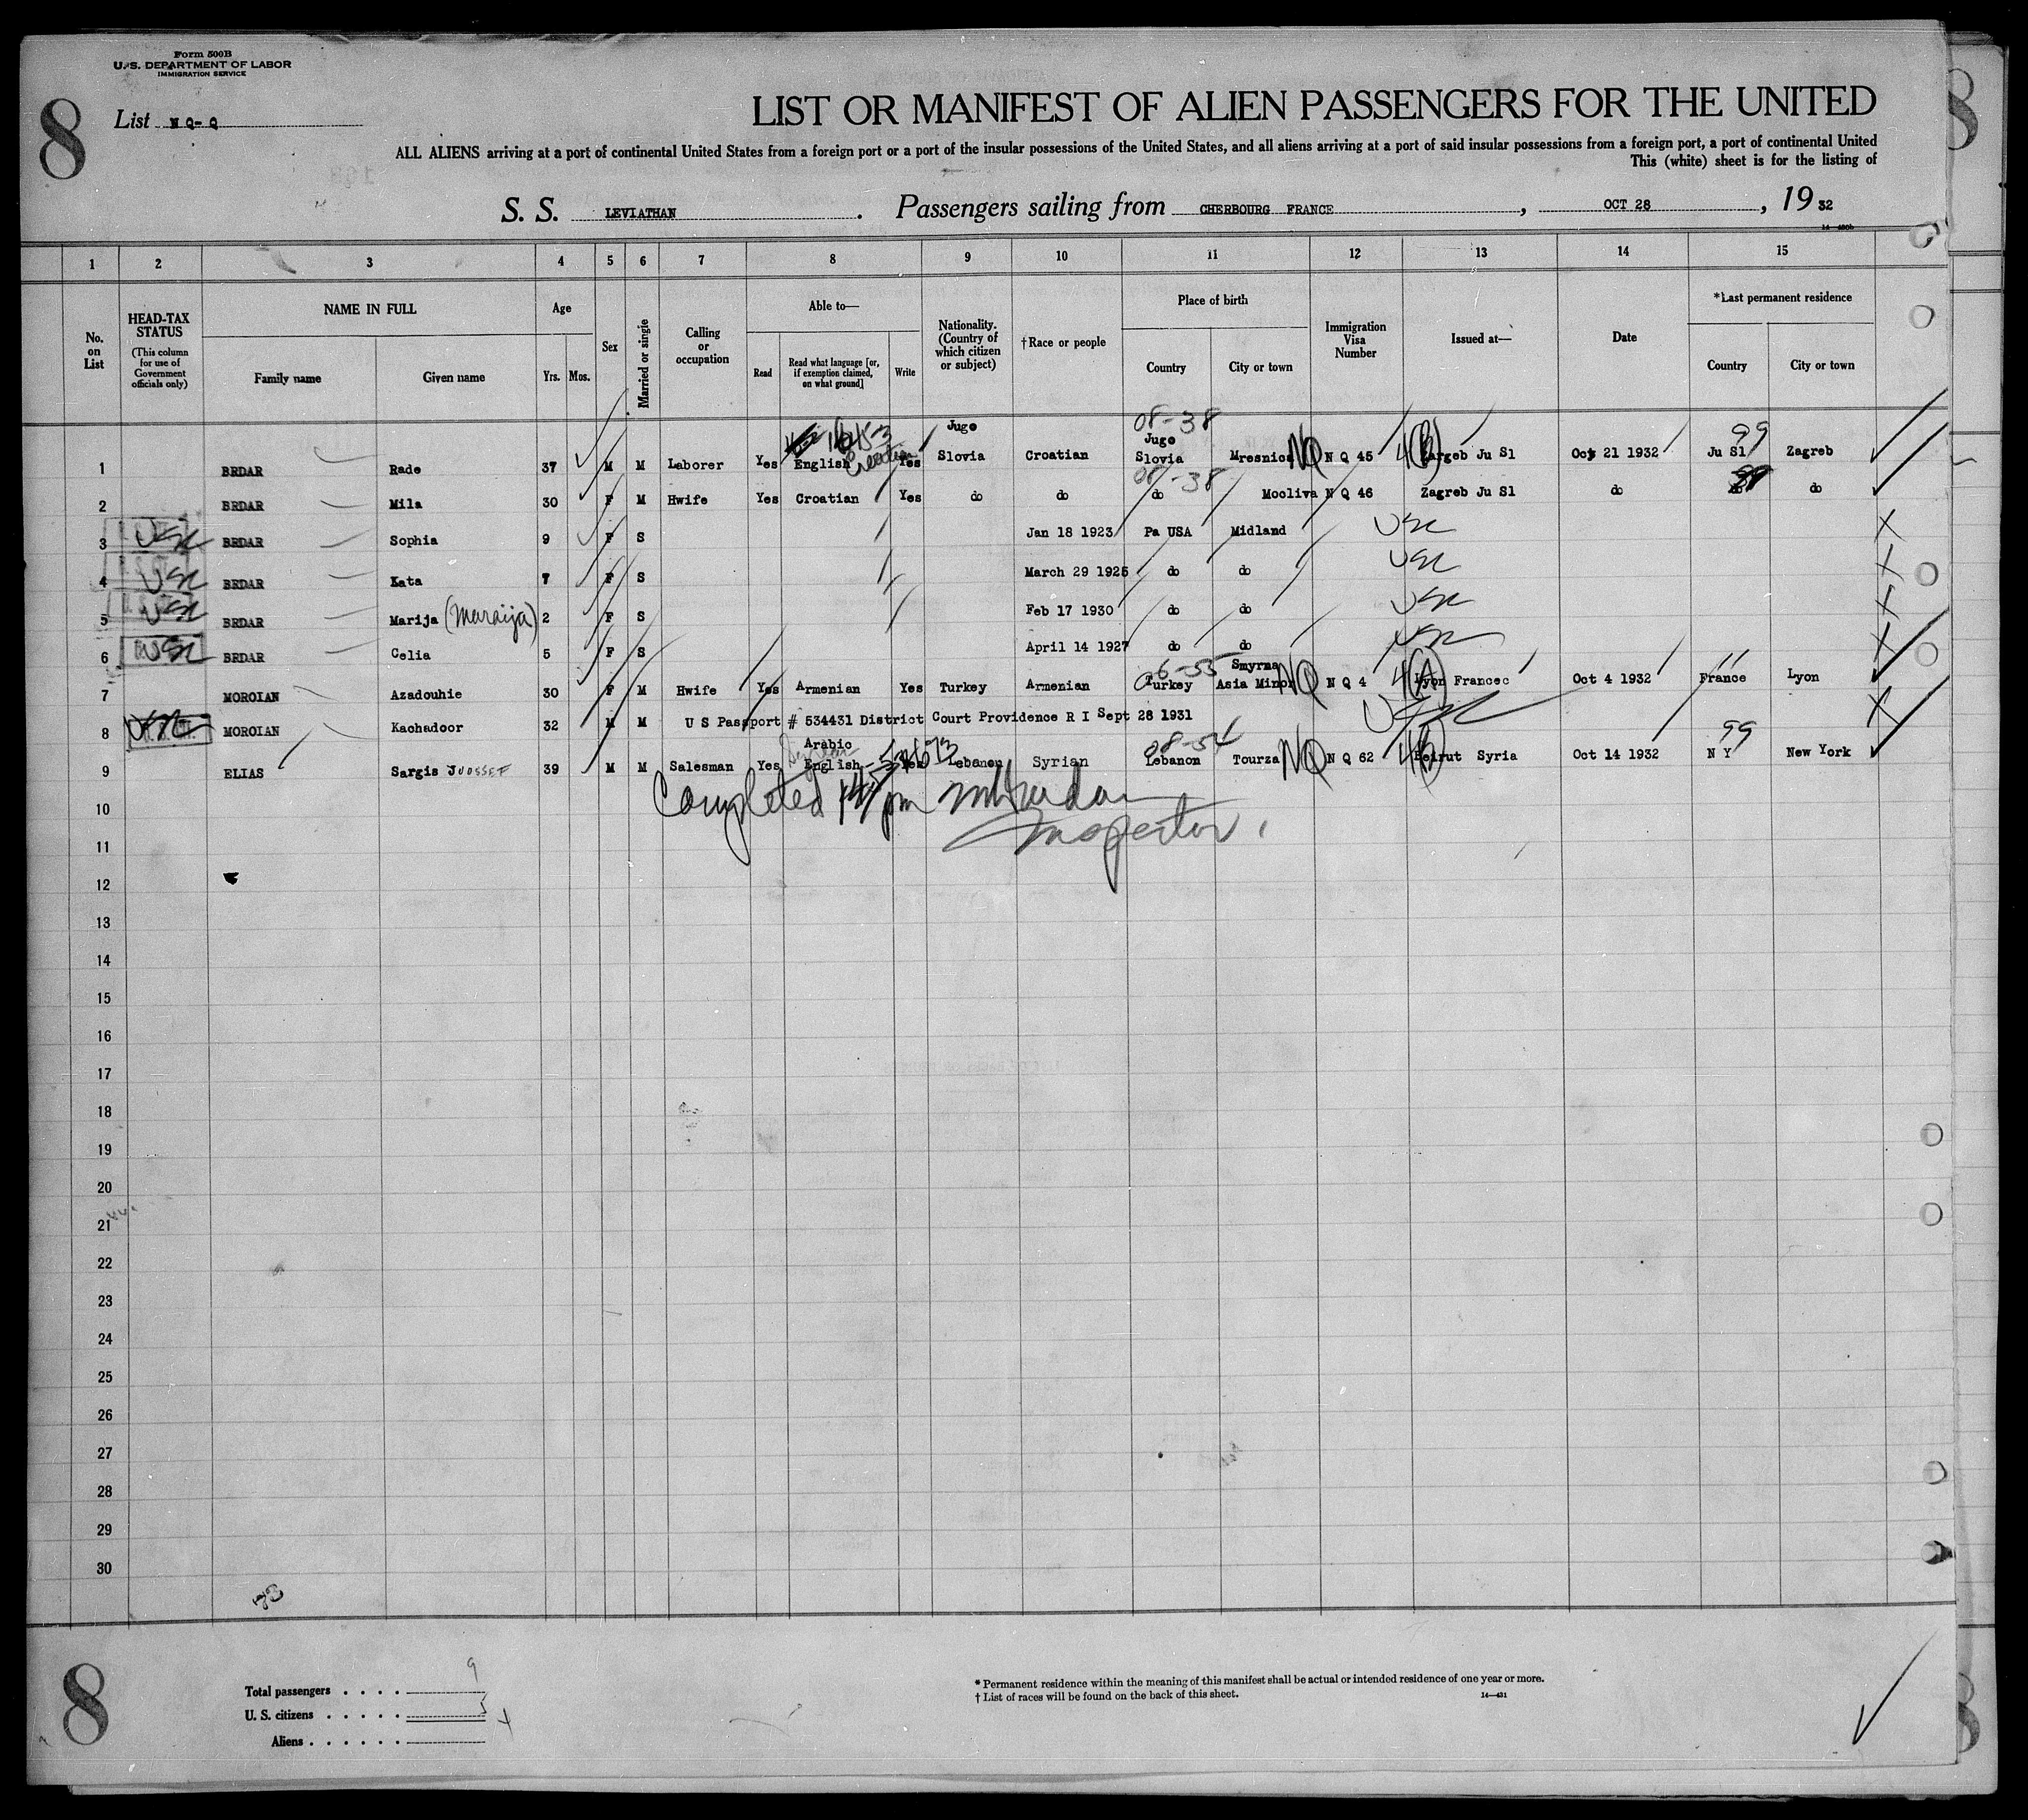 Form 500B
U. S. DEPARTMENT OF LABOR
IMMIGRATION SERVICE
8
List N Q- Q
LIST OR MANIFEST OF ALIEN PASSENGERS FOR THE UNITED
ALL ALIENS arriving at a port of continental United States from a foreign port or a port of the insular possessions of the United States, and all aliens arriving at a port of said insular possessions from a foreign port, a port of continental United
This (white) sheet is for the listing of
S. S. LEVIATHAN. Passengers sailing from CHERBOURG FRANCE, OCT 28, 19 32
1 2 3 4 5 6 7 8 9 10 11 12 13 14 15
No. on List
HEAD-TAX STATUS (This column for use of Government officials only)
NAME IN FULL
Family name Given name
Age
Yrs. Mos.
Sex
Married or single
Calling or occupation
Able to—
Read Read what language [or, if exemption claimed, on what ground] Write
Nationality. (Country of which citizen or subject)
†Race or people
Place of birth
Country City or town
Immigration Visa Number
Issued at—
Date
*Last permanent residence
Country City or town
08-38 99
Jugo Jugo
1 BRDAR Rade 37 M M Laborer Yes English Croatian Yes Slovia Croatian Slovia Mresnica NQ N Q 45 Zargeb Ju Sl Oct 21 1932 Ju Sl Zagreb
08-38
2 BRDAR Mila 30 F M Hwife Yes Croatian Yes do do do Mocliva N Q 46 Zagreb Ju Sl do do
3 USC BRDAR Sophia 9 F S Jan 18 1923 Pa USA Midland USC
4 USC BRDAR Kata 7 F S March 29 1925 do do USC
5 USC BRDAR Marija (Maraija) 2 F S Feb 17 1930 do do USC
6 USC BRDAR Celia 5 F S April 14 1927 do do USC
6-55 Smyrna
7 MOROIAN Azadouhie 30 F M Hwife Yes Armenian Yes Turkey Armenian Turkey Asia Minor NQ N Q 4 4(A) Lyon Francec Oct 4 1932 France Lyon
8 USC MOROIAN Kachadoor 32 M M U S Passport # 534431 District Court Providence R I Sept 28 1931 USC
Arabic 08-54 99
9 ELIAS Sargis JUOSSEF 39 M M Salesman Yes English Yes Lebanon Syrian Lebanon Tourza NQ N Q 62 Beirut Syria Oct 14 1932 N Y New York
Completed pm
Inspector
10
11
12
13
14
15
16
17
18
19
20
21
22
23
24
25
26
27
28
29
30
8
Total passengers . . . . 9
U. S. citizens . . . . . 5
Aliens . . . . . .
* Permanent residence within the meaning of this manifest shall be actual or intended residence of one year or more.
† List of races will be found on the back of this sheet. 14—431